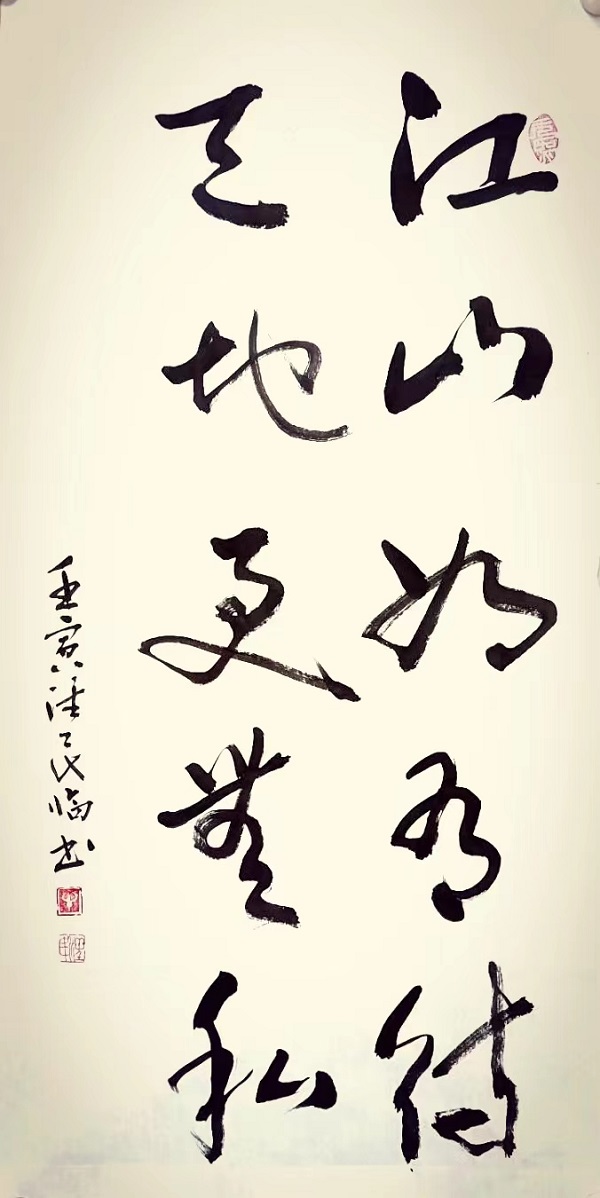 江山如有待
天地更無私
壬寅汪临书